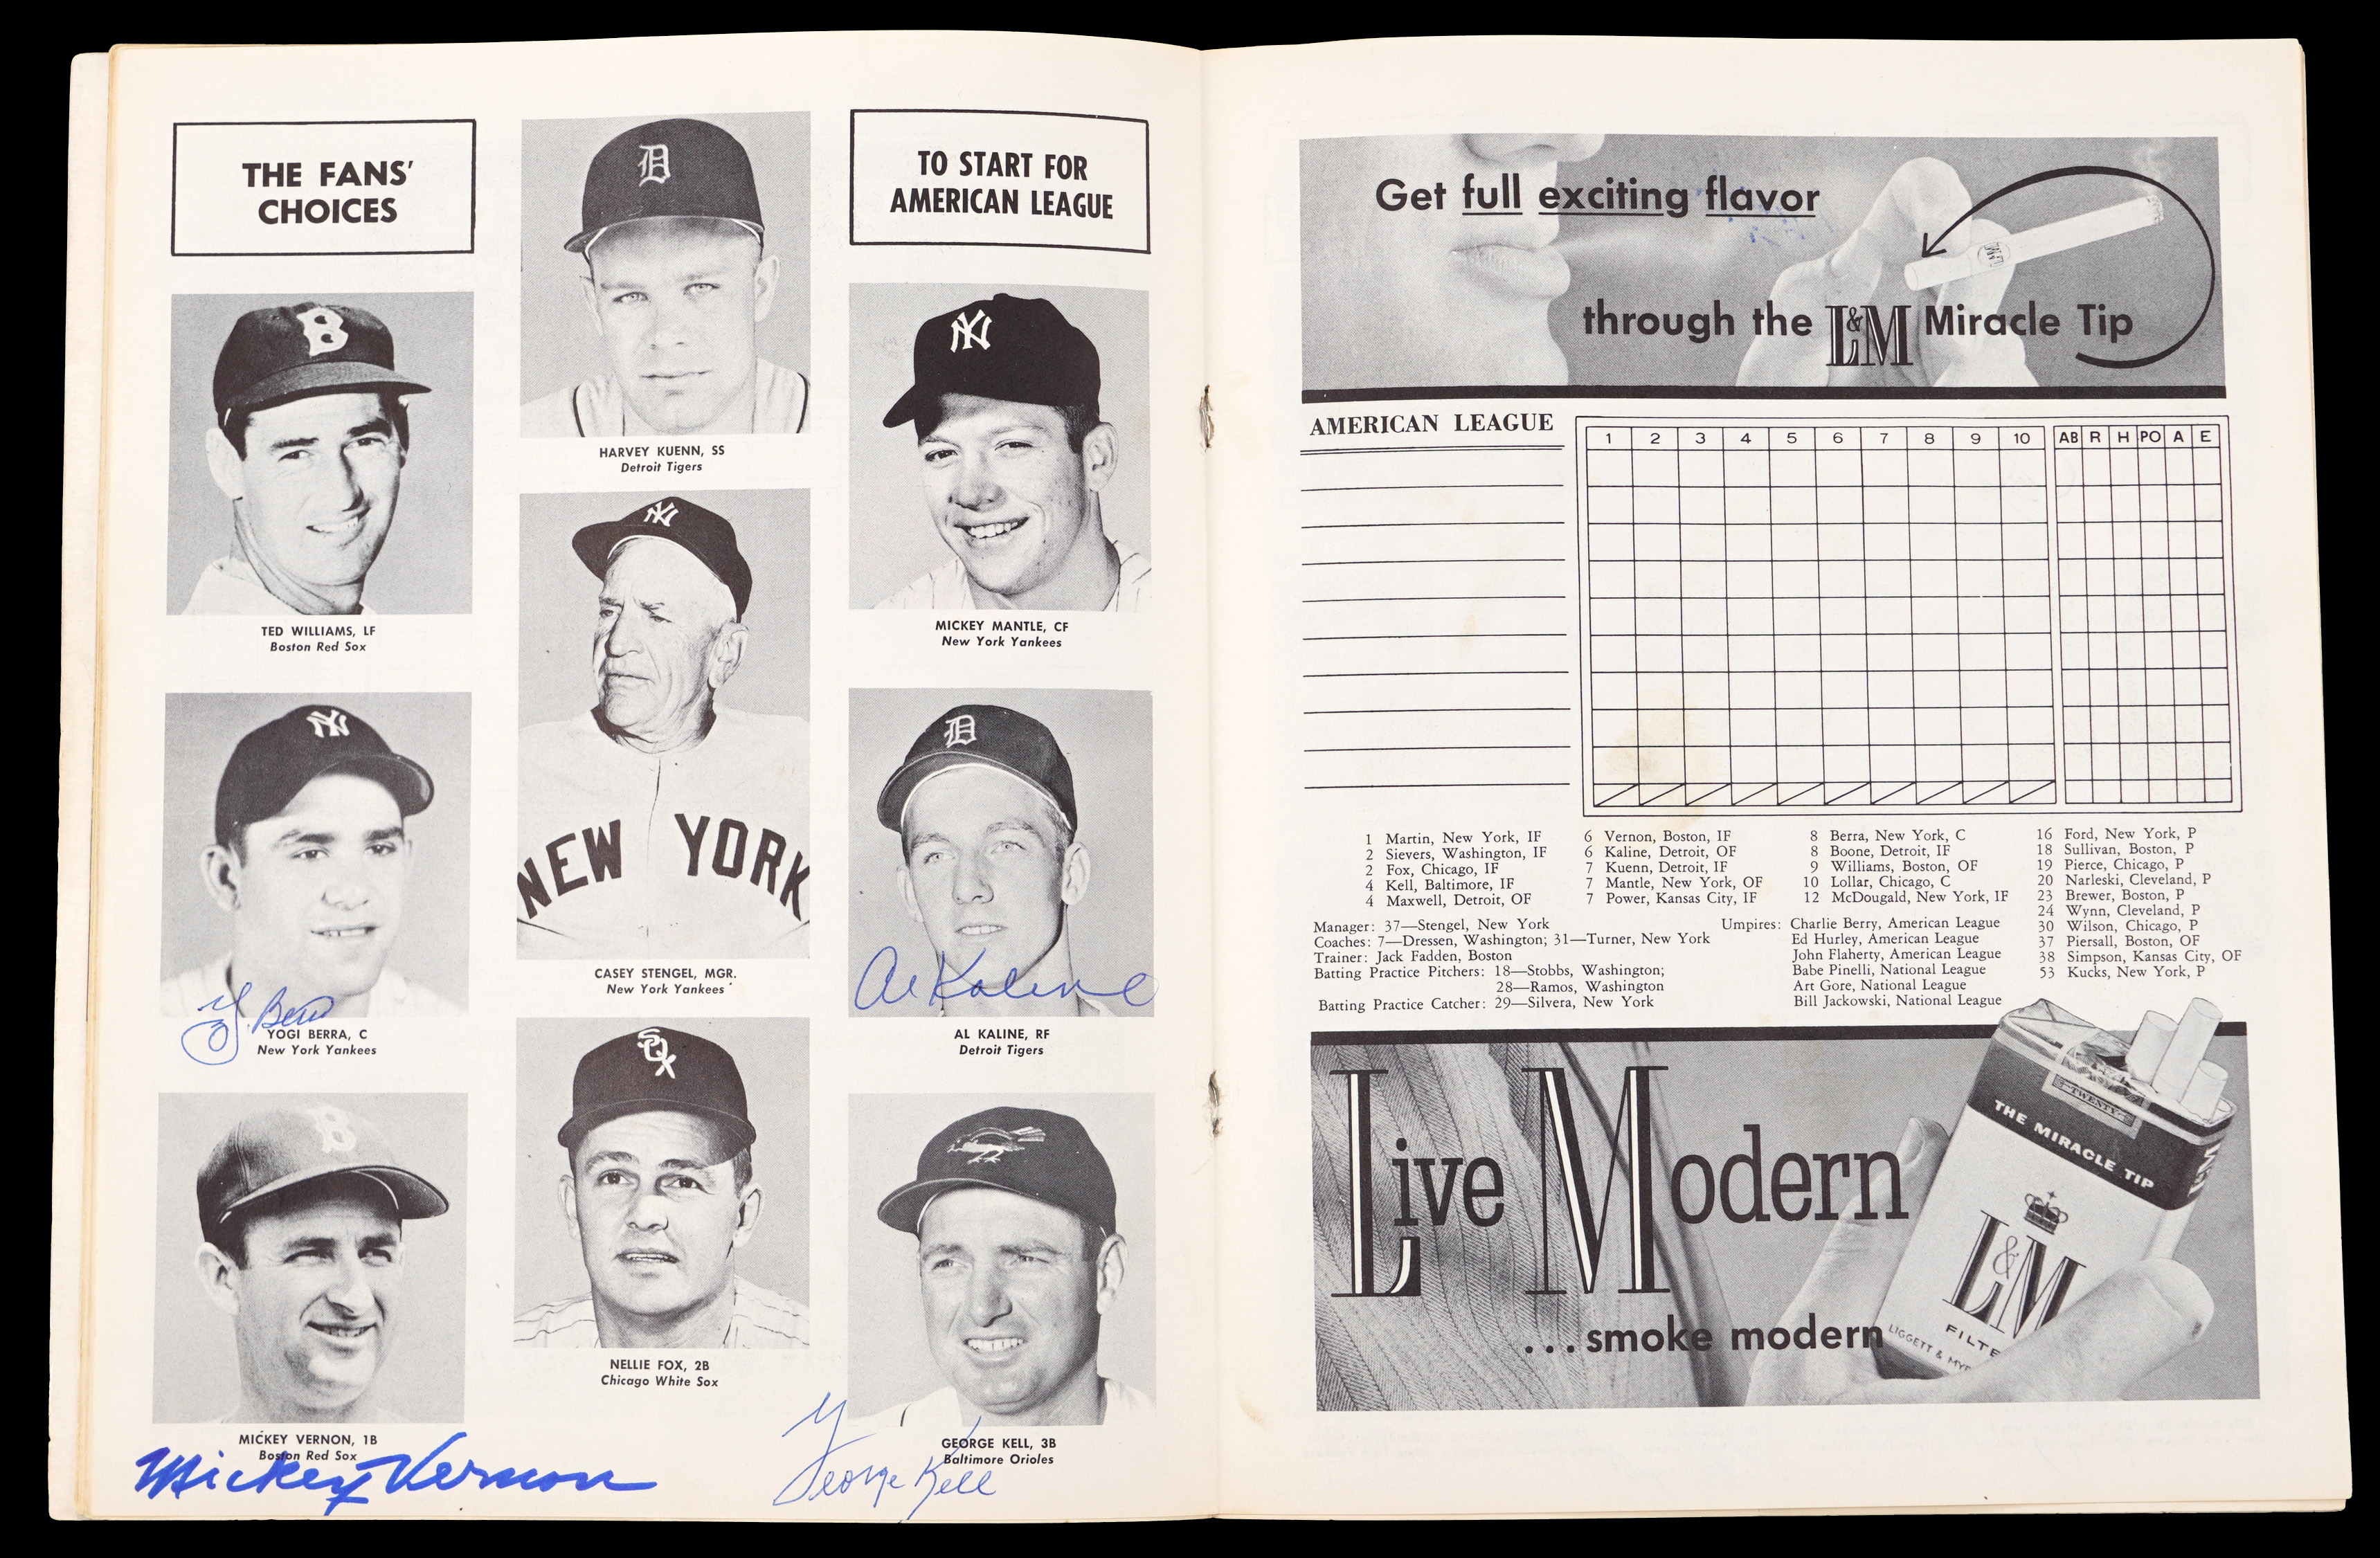 THE FANS'
CHOICES
D
TO START FOR
AMERICAN LEAGUE
B
HARVEY KUENN, SS
Detroit Tigers
NY
TED WILLIAMS, LF
Boston Red Sox
NY
NEW YORK
MICKEY MANTLE, CF
New York Yankees
NY
Y. Berra
YOGI BERRA, C
New York Yankees
CASEY STENGEL, MGR.
New York Yankees
D
Al Kaline
AL KALINE, RF
Detroit Tigers
B
MICKEY VERNON, 1B
Boston Red Sox
Mickey Vernon
SOX
NELLIE FOX, 2B
Chicago White Sox
GEORGE KELL, 3B
Baltimore Orioles
George Kell
Get full exciting flavor
through the L&M Miracle Tip
L&M
AMERICAN LEAGUE
1 2 3 4 5 6 7 8 9 10 AB R H PO A E
1 Martin, New York, IF
2 Sievers, Washington, IF
2 Fox, Chicago, IF
4 Kell, Baltimore, IF
4 Maxwell, Detroit, OF
6 Vernon, Boston, IF
6 Kaline, Detroit, OF
7 Kuenn, Detroit, IF
7 Mantle, New York, OF
7 Power, Kansas City, IF
8 Berra, New York, C
8 Boone, Detroit, IF
9 Williams, Boston, OF
10 Lollar, Chicago, C
12 McDougald, New York, IF
16 Ford, New York, P
18 Sullivan, Boston, P
19 Pierce, Chicago, P
20 Narleski, Cleveland, P
23 Brewer, Boston, P
24 Wynn, Cleveland, P
30 Wilson, Chicago, P
37 Piersall, Boston, OF
38 Simpson, Kansas City, OF
53 Kucks, New York, P
Manager: 37—Stengel, New York
Coaches: 7—Dressen, Washington; 31—Turner, New York
Trainer: Jack Fadden, Boston
Batting Practice Pitchers: 18—Stobbs, Washington;
28—Ramos, Washington
Batting Practice Catcher: 29—Silvera, New York
Umpires: Charlie Berry, American League
Ed Hurley, American League
John Flaherty, American League
Babe Pinelli, National League
Art Gore, National League
Bill Jackowski, National League
Live Modern
...smoke modern
TWENTY
THE MIRACLE TIP
L&M
L&M
FILTE
LIGGETT & MY